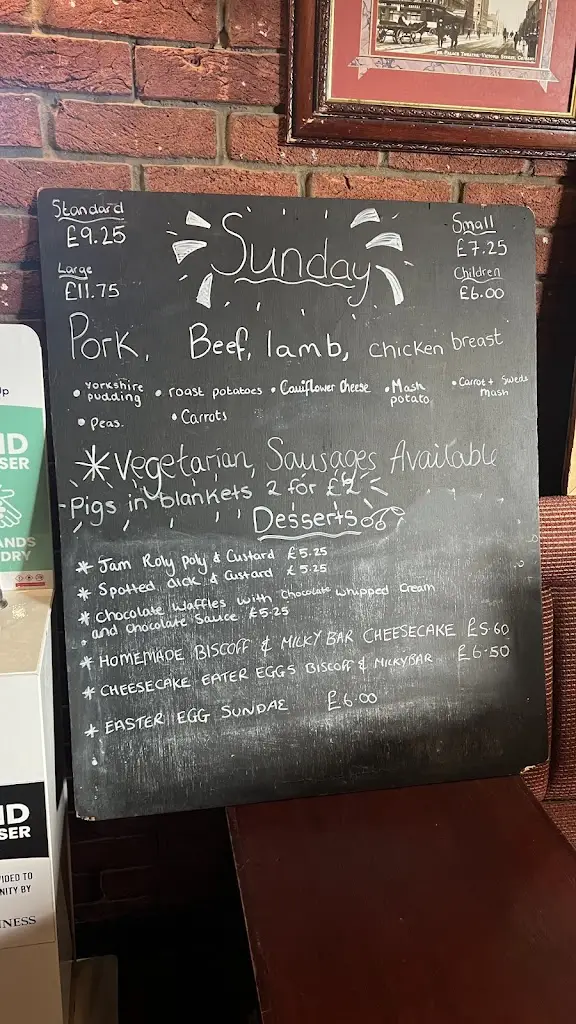 Standard
£9.25
Large
£11.75
Sunday
Small
£7.25
Children
£6.00
Pork, Beef, lamb, chicken breast
• Yorkshire pudding • roast potatoes • Cauliflower Cheese • Mash potato • Carrot + Swede mash
• Peas. • Carrots
* Vegetarian, Sausages Available
- Pigs in blankets 2 for £2
Desserts
* Jam Roly Poly & Custard £5.25
* Spotted dick & Custard £5.25
* Chocolate Waffles with Chocolate Whipped Cream
and Chocolate Sauce £5.25
* HOMEMADE BISCOFF & MILKY BAR CHEESECAKE £5.60
* CHEESECAKE EATER EGGS BISCOFF & MILKYBAR £6.50
* EASTER EGG SUNDAE £6.00
ND
SER
ANDS
DRY
ND
SER
VIDED TO
NITY BY
INESS